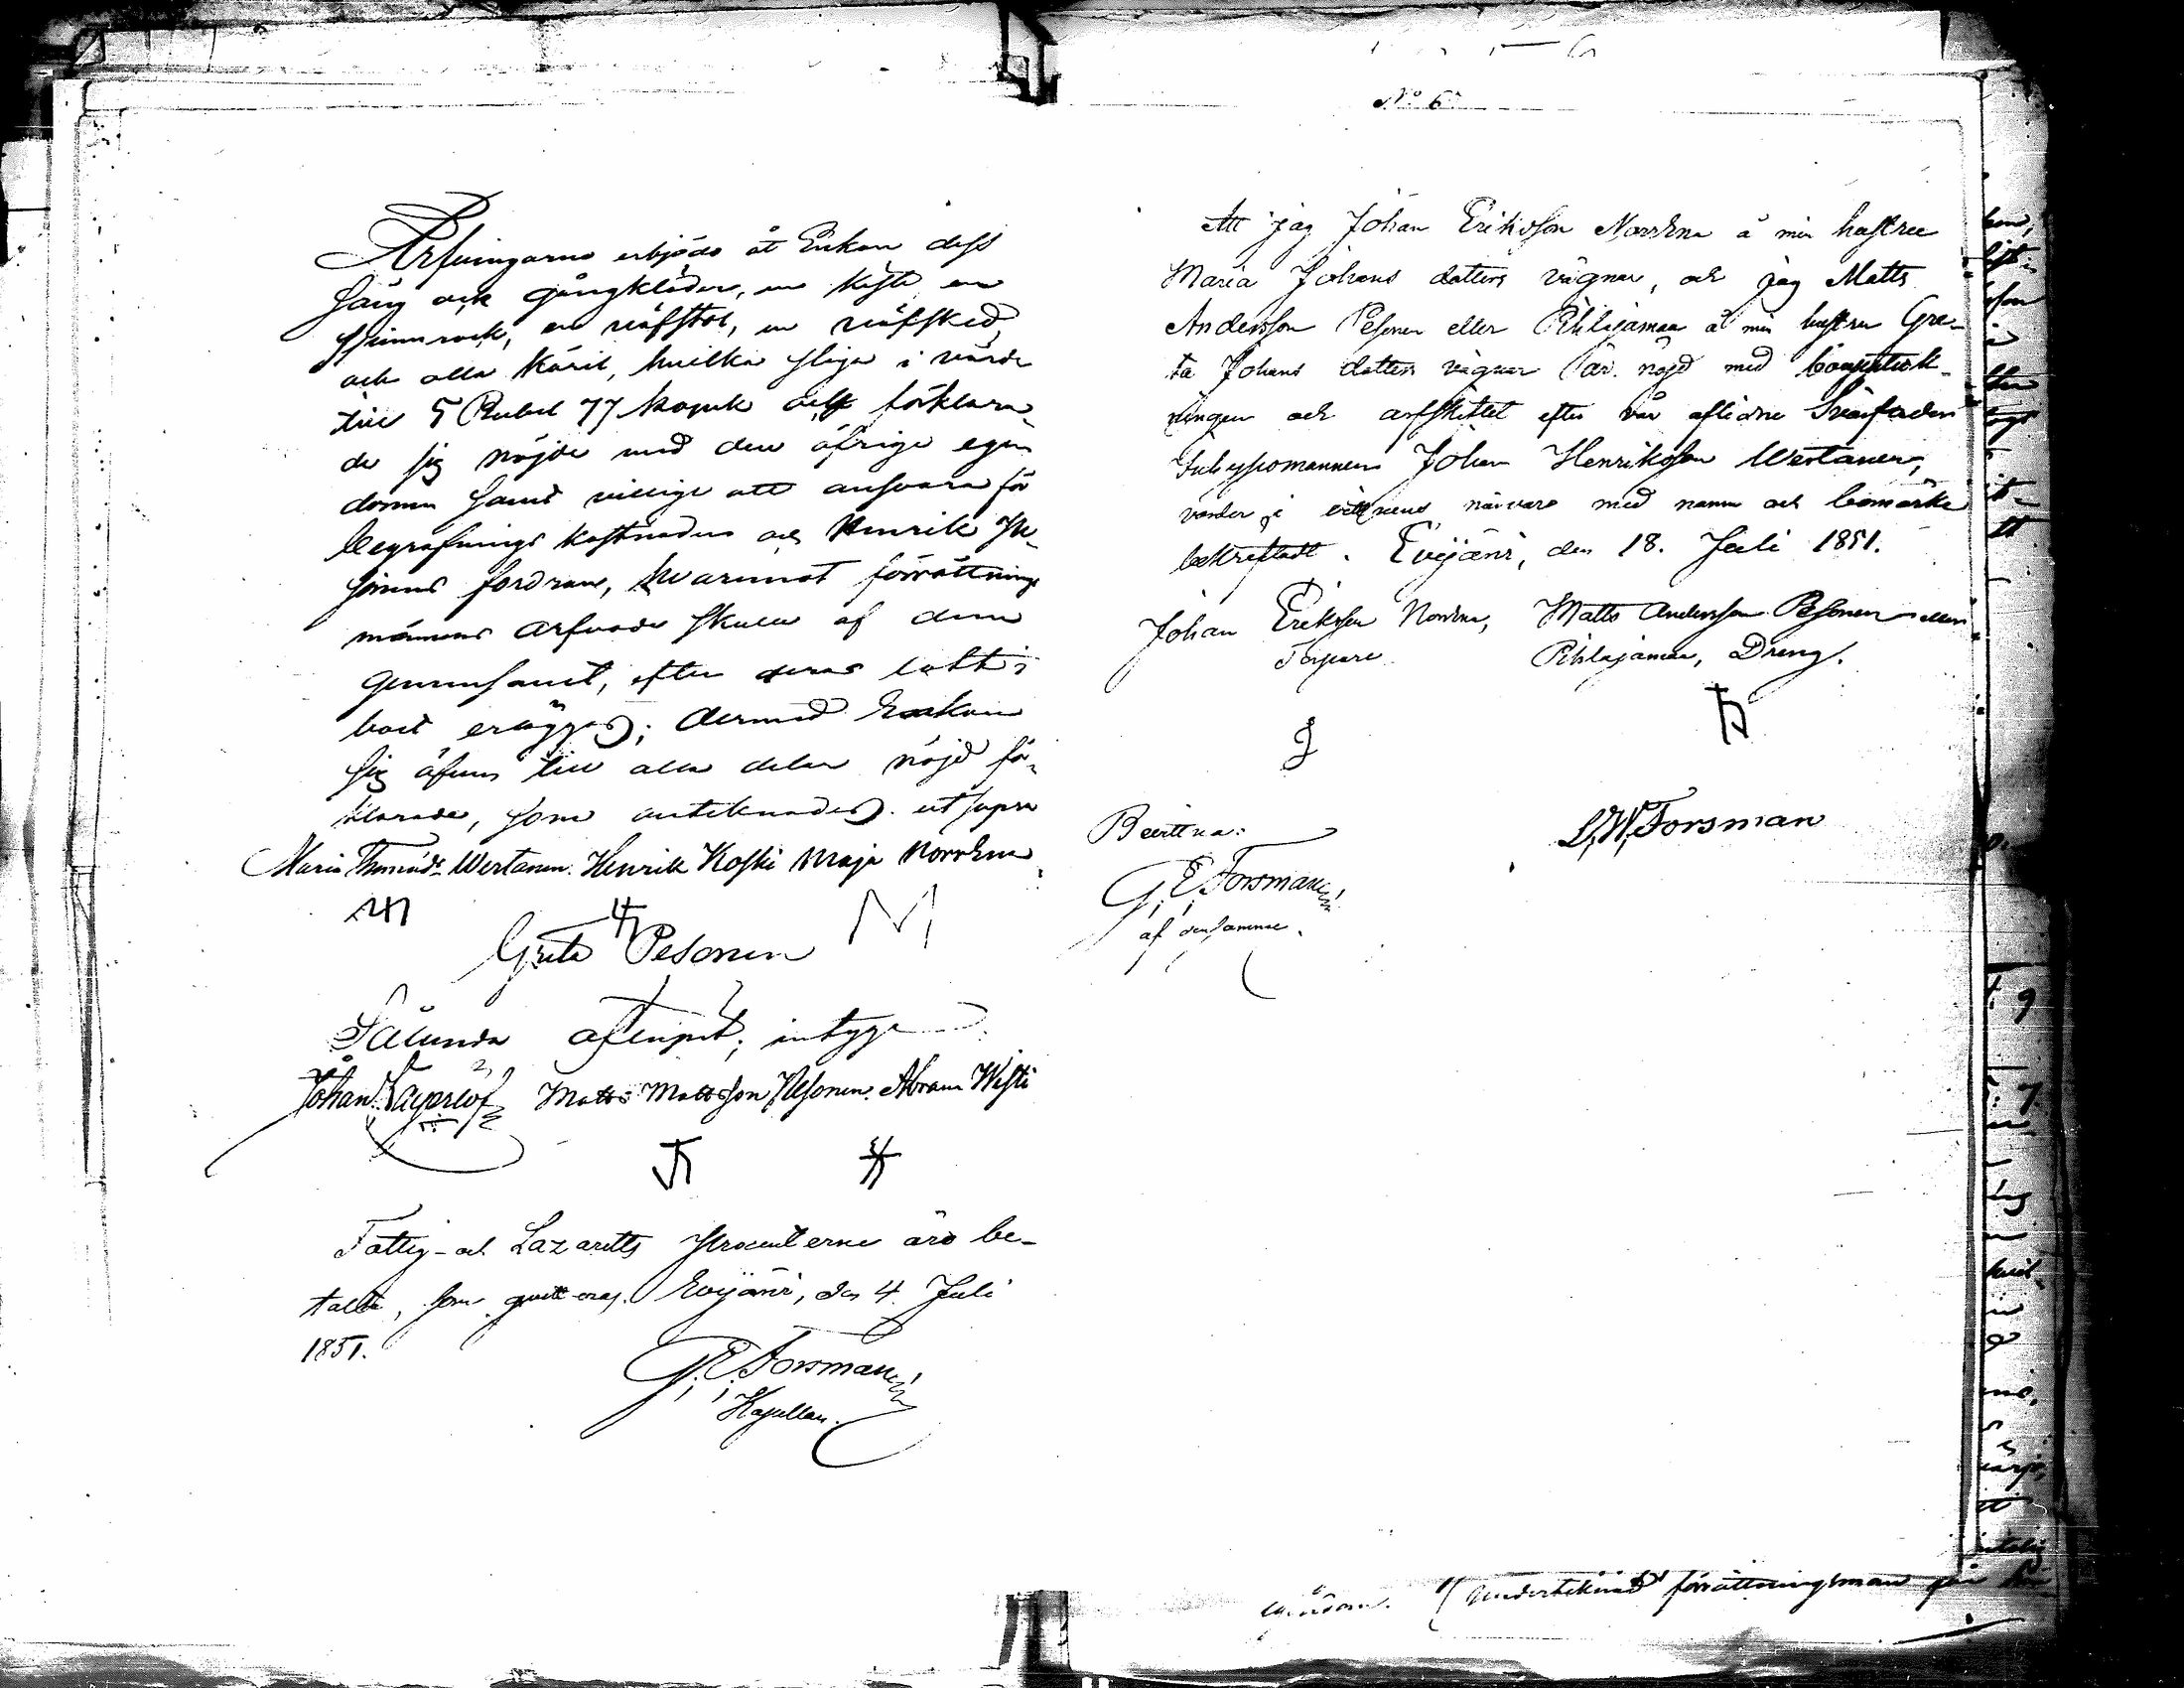 Arfvingarne erbjödo åt Enkan dess
säng och gångkläder, en kista en
spinnrock, en väfstol, en väfsked
och alla käril, hvilka stiga i värde
till 5 Rubel 77 kopek och förklara-
de sig nöjde med den öfriga egen
domen samt villige att ansvara för
begrafnings kostnaden och Henrik
fordran, hvarimot förrättnings
männens arfvode skulle af dem
gemensamt, efter deras lott i
boet erläggas; dermed Enkan
sig äfven till alla delar nöjd för-
klarade, som antecknades. ut supra
Maria Wertanen. Henrik Koski Maja Norrena
M
Greta Pesonen
Sålunda aflupit, intyga
Johan Matts Mattsson Pesonen. Abram Wisti
Fattig- och Lazaretts procenterne äro be-
talte, som qvitteras. Evijärvi, den 4 Juli
1851.
G. E. Forsman
Kapellan.
No 6
Att jag Johan Eriksson Norrena å min hustru
Maria Johans dotters vägnar, och jag Matts
Andersson Pesonen eller Pihlajamaa å min hustru Gre-
ta Johans dotters vägnar är nöjd med bouppteck-
ningen och arfskiftet efter vår aflidne Svärfader
Johan Henriksson Wertanen,
varder i vittnens närvaro med namn och bomärke
bekräftadt. Evijärvi, den 18. Juli 1851.
Johan Eriksson Norrena, Matts Andersson Pesonen eller
Torpare. Pihlajamaa, Dreng.
Bevittna:
L. W. Forsman
G. E. Forsman
af densamme.
egendom. undertecknad förrättningsman